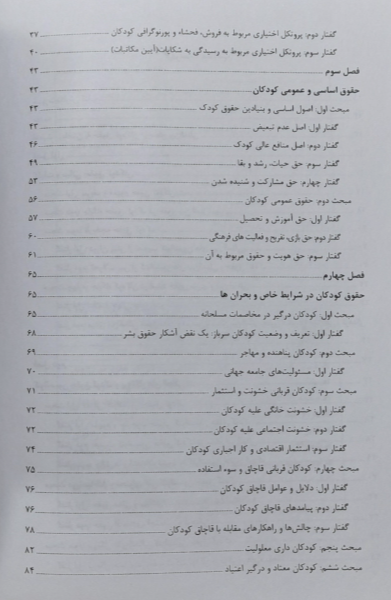 گفتار دوم: پروتکل اختیاری مربوط به فروش، فحشاء و پورنوگرافی کودکان ۳۷
گفتار سوم: پروتکل اختیاری مربوط به رسیدگی به شکایات(آیین مکاتبات) ۴۰
فصل سوم ۴۳
حقوق اساسی و عمومی کودکان ۴۳
مبحث اول: اصول اساسی و بنیادین حقوق کودک ۴۳
گفتار اول: اصل عدم تبعیض ۴۳
گفتار دوم: اصل منافع عالی کودک ۴۶
گفتار سوم: حق حیات، رشد و بقا ۴۹
گفتار چهارم: حق مشارکت و شنیده شدن ۵۳
مبحث دوم: حقوق عمومی کودکان ۵۶
گفتار اول: حق آموزش و تحصیل ۵۷
گفتار دوم: حق بازی، تفریح و فعالیت های فرهنگی ۶۰
گفتار سوم: حق هویت و حقوق مربوط به آن ۶۱
فصل چهارم ۶۵
حقوق کودکان در شرایط خاص و بحران ها ۶۵
مبحث اول: کودکان درگیر در مخاصمات مسلحانه ۶۵
گفتار اول: تعریف و وضعیت کودکان سرباز: یک نقض آشکار حقوق بشر ۶۸
مبحث دوم: کودکان پناهنده و مهاجر ۶۹
گفتار اول: مسئولیت‌های جامعه جهانی ۷۰
مبحث سوم: کودکان قربانی خشونت و استثمار ۷۱
گفتار اول: خشونت خانگی علیه کودکان ۷۲
گفتار دوم: خشونت اجتماعی علیه کودکان ۷۲
گفتار سوم: استثمار اقتصادی و کار اجباری کودکان ۷۴
مبحث چهارم: کودکان قربانی قاچاق و سوء استفاده ۷۵
گفتار اول: دلایل و عوامل قاچاق کودکان ۷۶
گفتار دوم: پیامدهای قاچاق کودکان ۷۶
گفتار سوم: چالش‌ها و راهکارهای مقابله با قاچاق کودکان ۷۸
مبحث پنجم: کودکان داری معلولیت ۸۲
مبحث ششم: کودکان معتاد و درگیر اعتیاد ۸۴